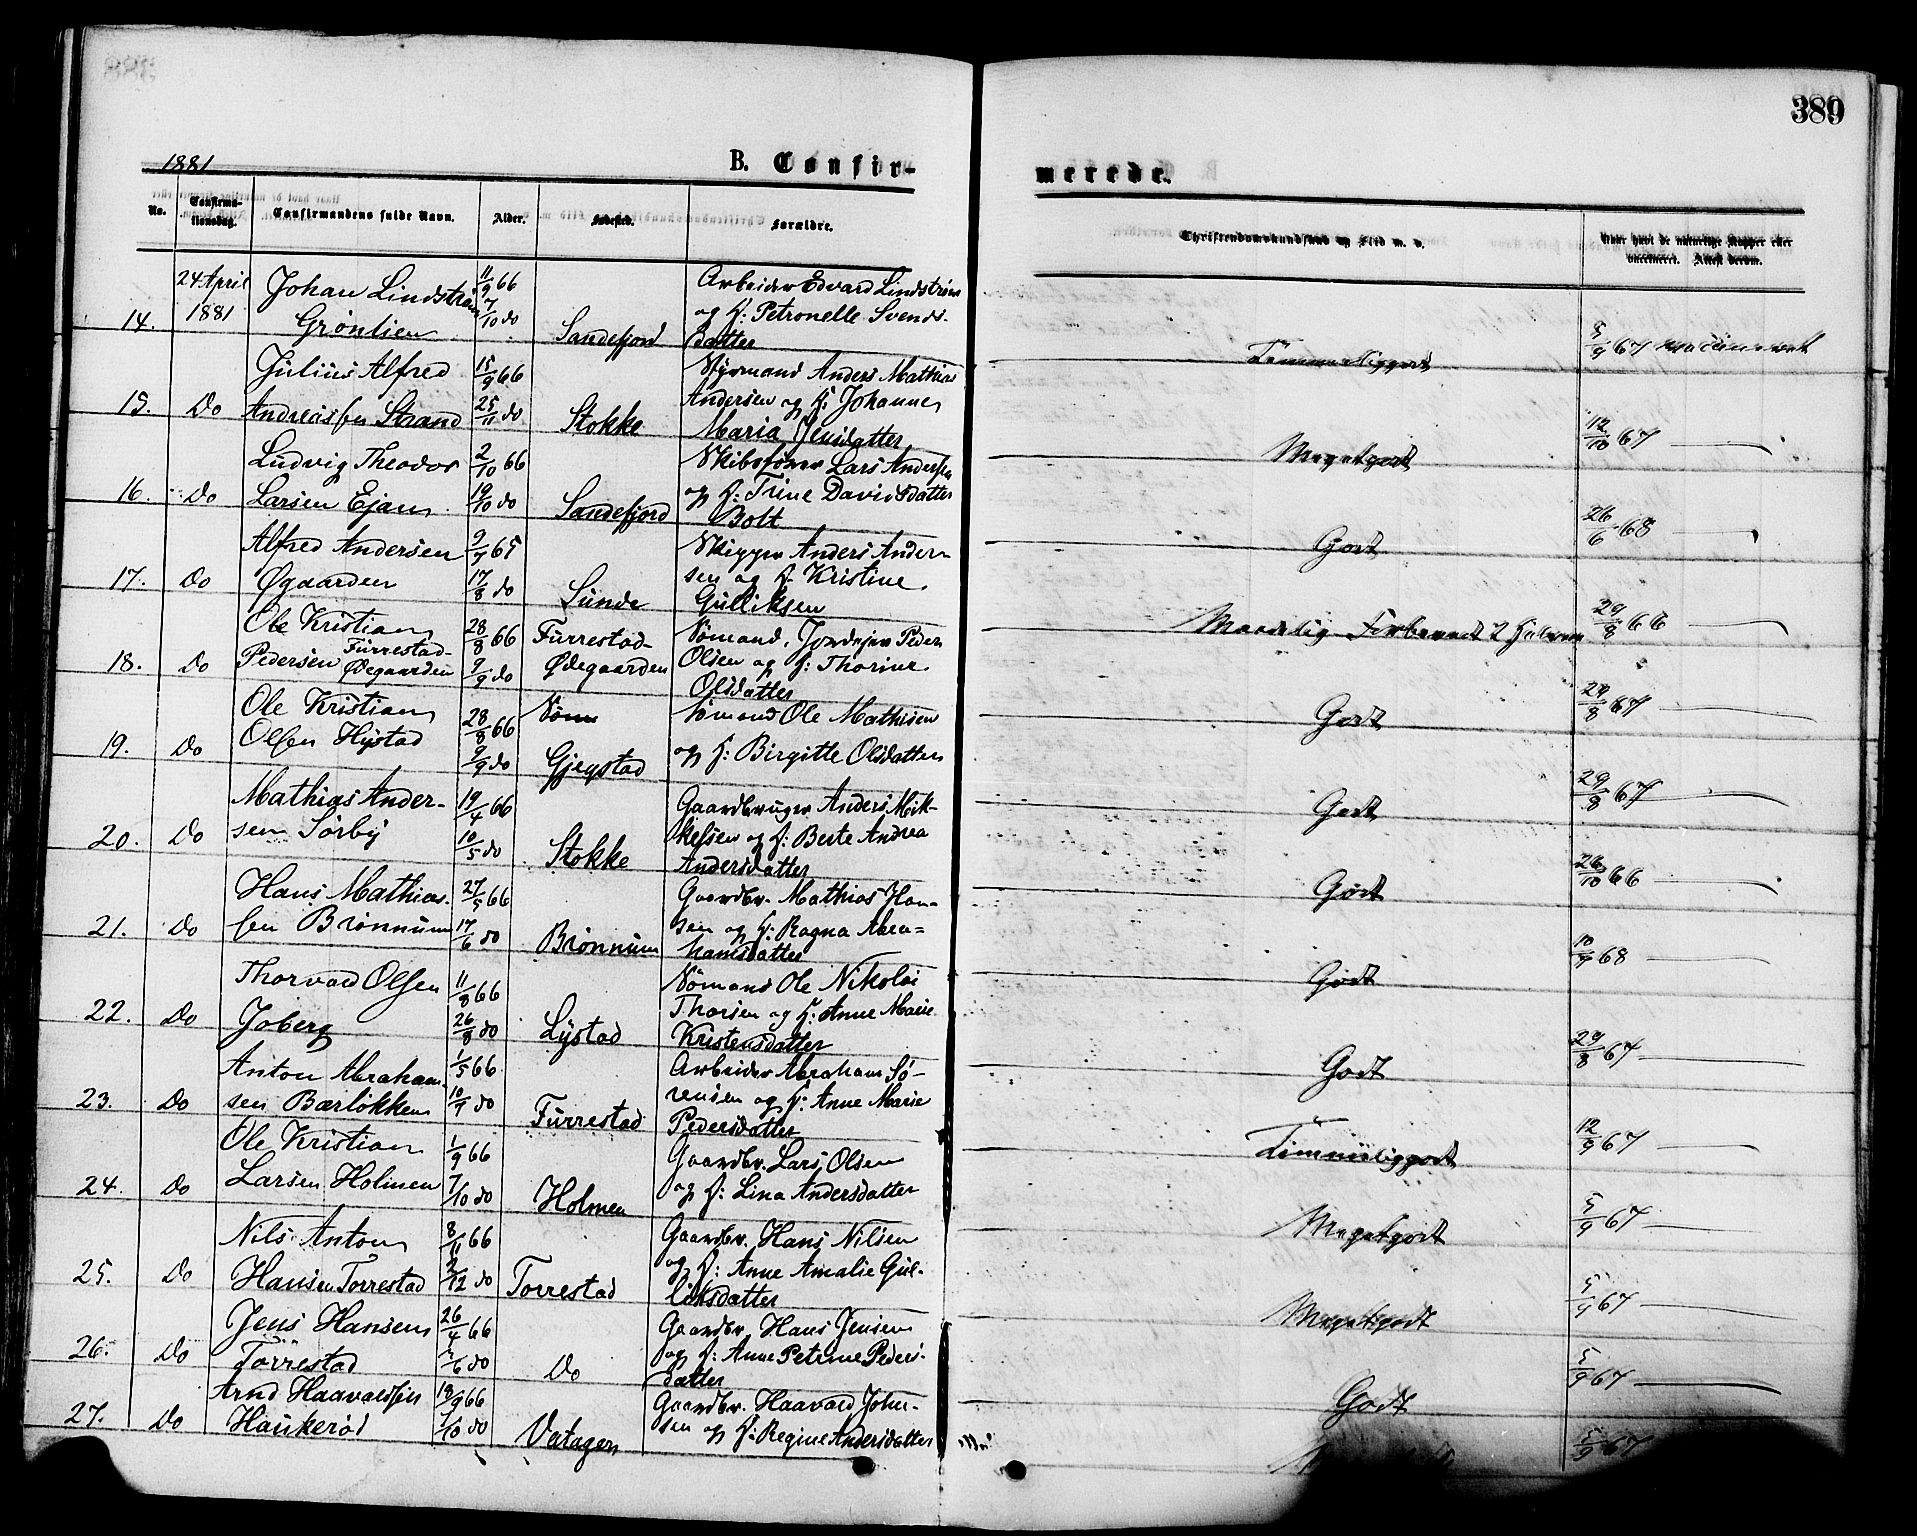 389
1881
B. Confir-
merede.
No.
Confirma-
tionsdag.
Confirmandens fulde Navn.
Alder.
Fødested.
Forældre.
Christendomskundskab og Flid m. v.
Naar havt de naturlige Kopper eller
vaccineret. Attest derom.
14. 24 April 1881
Johan Lindstrøm
Grønlien
11/9 66
7/10 do
Sandefjord
Arbeider Edvard Lindstrøm
og H: Petronelle Svends-
datter
Temmeliggodt
5/9 67 vaccineret
15. Do
Julius Alfred
Andreasſen Strand
15/9 66
25/11 do
Stokke
Styrmand Anders Mathias
Andersen og H: Johanne
Maria Jensdatter
Megetgodt
12/10 67
16. Do
Ludvig Theodor
Larsen Ejan
2/10 66
19/10 do
Sandefjord
Skibsfører Lars Anderſen
og H: Trine Davidsdatter
Bolt
Godt
26/6 68
17. Do
Alfred Andersen
Øgaarden
65
17/8 do
Sunde
Skipper Anders Ander-
sen og H: Kristine
Gulliksen
Maadelig
29/8 66
18. Do
Ole Kristian
Pedersen Furrestad-
Ødegaarden
28/8 66
9/9 do
Furrestad-
Ødegaarden
Sømand, Jordejer Peder
Olsen og H: Thorine
Olsdatter
Godt
29/8 67
19. Do
Ole Kristian
Olſen Hystad
28/8 66
9/9 do
Gjegstad
Sømand Ole Mathisen
og H: Birgitte Olsdatter
Godt
29/8 67
20. Do
Mathias Ander-
sen Sørby
19/4 66
10/5 do
Stokke
Gaardbruger Anders Mik-
kelsen og H: Berte Andrea
Andersdatter
Godt
26/10 66
21. Do
Hans Mathias-
ſen Brønnum
27/5 66
17/6 do
Brønnum
Gaardbr. Mathias Han-
sen og H: Ragna Abra-
hamsdatter
Godt
10/9 68
22. Do
Thorvald Olſen
Joberg
11/8 66
26/8 do
Lystad
Sømand Ole Nikolai
Thorsen og H: Anne Marie
Kristensdatter
Godt
29/8 67
23. Do
Anton Abraham-
sen Bærløkken
1/5 66
do
Furrestad
Arbeider Abraham Sø-
rensen og H: Anne Marie
Pedersdatter
Temmeliggodt
12/9 67
24. Do
Ole Kristian
Larsen Holmen
1/9 66
7/10 do
Holmen
Gaardbr. Lars Olsen
og H: Lina Andersdatter
Megetgodt
5/9 67
25. Do
Nils Anton
Hansen Torrestad
8/11 66
2/12 do
Torrestad
Gaardbr. Hans Nilsen
og H: Anne Amalie Gul-
liksdatter
Megetgodt
5/9 67
26. Do
Jens Hansen
Torrestad
26/4 66
do
Do
Gaardbr. Hans Jensen
og H: Anne Petrine Peders-
datter
Godt
5/9 67
27. Do
Arnd Haavaldſen
Haukerød
18/9 66
7/10 do
Gaardbr. Haavald Johan-
sen og H: Regine Andersdatter
5/9 67